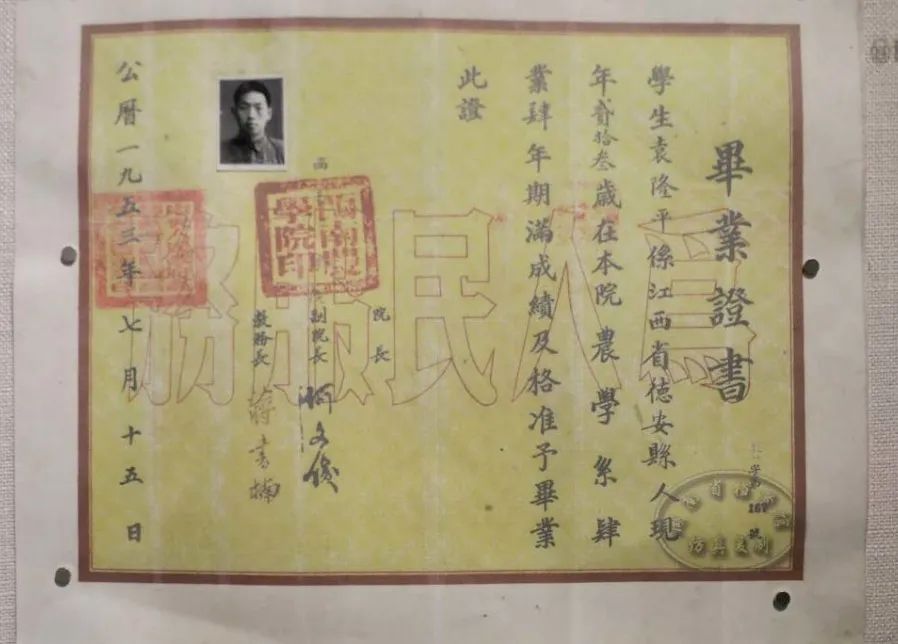 畢業證書
學生袁隆平係江西省德安縣人現
年貳拾叁歲在本院農學系肆
業肆年期滿成績及格准予畢業
此證
院長
副院長
教務長
西南農學院印
公曆一九五三年七月十五日
爲人民服務